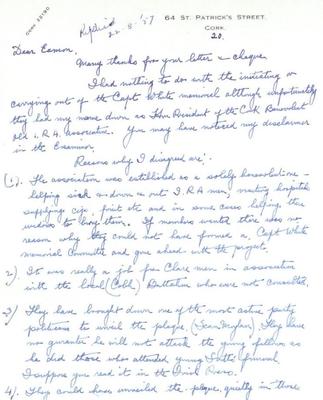 CORK 23190
Replied 22-8-'57
64 ST. PATRICK'S STREET,
CORK.
20.
Dear Eamon,
Many thanks for your letter & cheque.
I had nothing to do with the initiating or
carrying out of the Capt White memorial although unfortunately
they had my name down as Hon President of the Cork Benevolent
Old I.R.A. association. You may have noticed my disclaimer
in the Examiner.
Reasons why I disagreed are:
(1). The association was established as a solely benevolent one -
helping sick & down & out I.R.A. men, visiting hospitals
supplying cigs, fruit etc and in some cases helping their
widows to bury them. If members wanted there was no
reason why they could not have formed a, Capt White
memorial Committee and gone ahead with the project.
2) It was really a job for Clare men in association
with the local (Cobh) Battalion who were not consulted.
3) They have brought down one of the most active party
politicians to unveil the plaque, (Sean Moylan). They have
no guarantee he will not attack the young fellows as
he did those who attended young funeral
I suppose you read it in the Irish Press.
4). They could have unveiled the plaque quietly in those